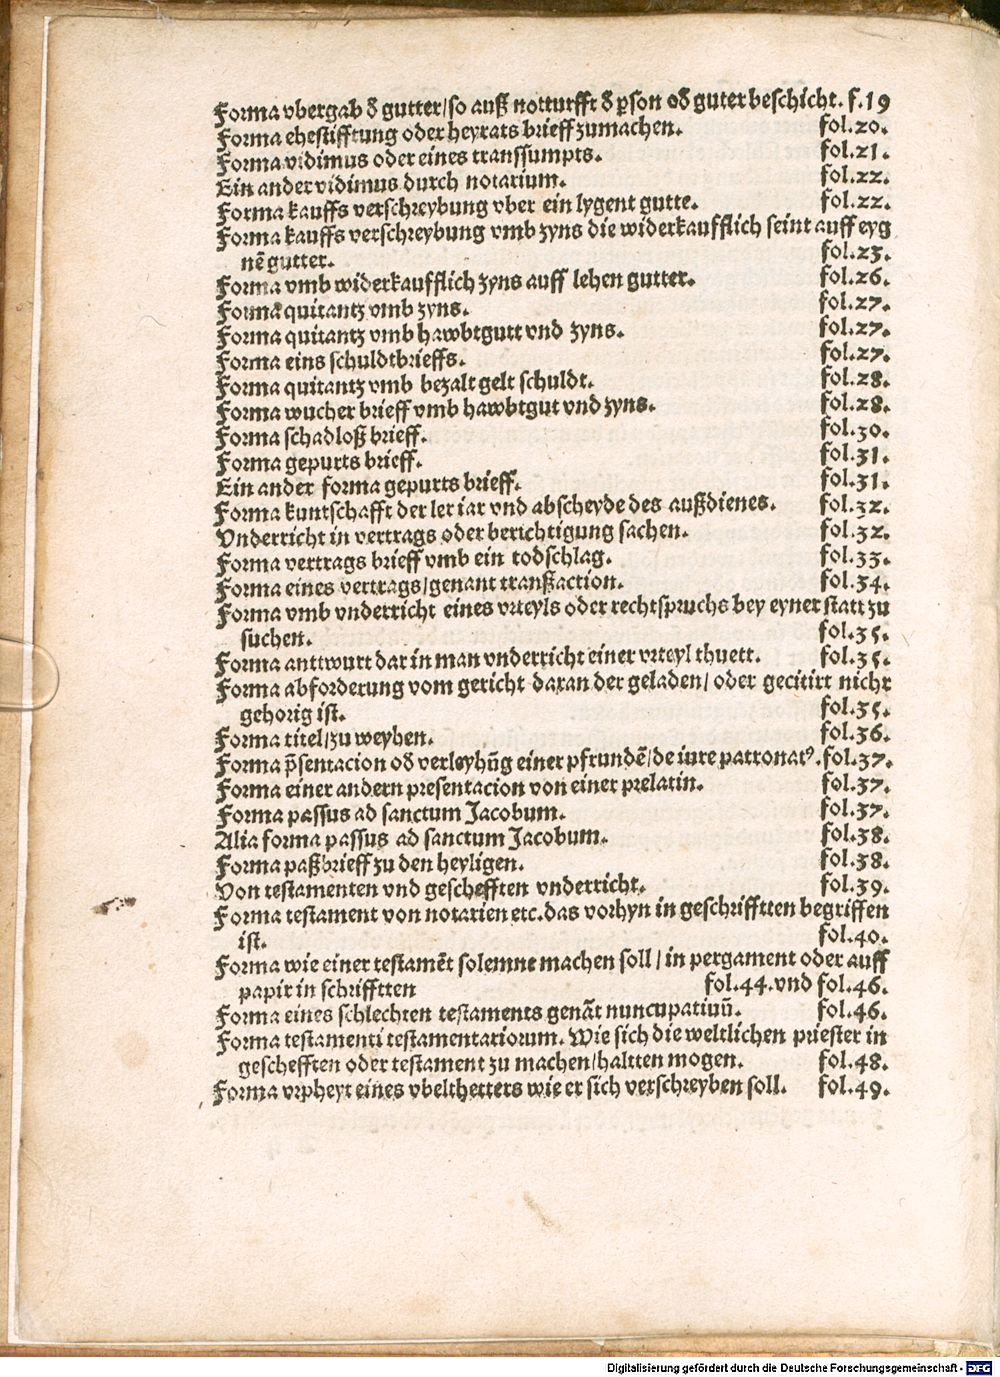 Forma vbergab ð gutter/so auß notturfft ð ꝑson oð guter beschicht. f.19
Forma ehestifftung oder heyrats brieff zumachen. fol.20.
Forma vidimus oder eines transsumpts. fol.21.
Ein ander vidimus durch notarium. fol.22.
Forma kauffs verschreybung vber ein lygent gutte. fol.22.
Forma kauffs verschreybung vmb zyns die widerkaufflich seint auff eyg
nē gutter. fol.23.
Forma vmb widerkaufflich zyns auff lehen gutter. fol.26.
Forma quitantz vmb zyns. fol.27.
Forma quitantz vmb hawbtgutt vnd zyns. fol.27.
Forma eins schuldtbrieffs. fol.27.
Forma quitantz vmb bezalt gelt schuldt. fol.28.
Forma wucher brieff vmb hawbtgut vnd zyns. fol.28.
Forma schadloß brieff. fol.30.
Forma gepurts brieff. fol.31.
Ein ander forma gepurts brieff. fol.31.
Forma kuntschafft der ler iar vnd abscheyde des außdienes. fol.32.
Vnderricht in vertrags oder berichtigung sachen. fol.32.
Forma vertrags brieff vmb ein todschlag. fol.33.
Forma eines vertrags/genant tranßaction. fol.34.
Forma vmb vnderricht eines vrteyls oder rechtspruchs bey eyner statt zu
suchen. fol.35.
Forma anttwurt dar in man vnderricht einer vrteyl thuett. fol.35.
Forma abforderung vom gericht daran der geladen/ oder gecitirt nicht
gehorig ist. fol.35.
Forma titel/zu weyhen. fol.36.
Forma p̄sentacion oð verleyhūg einer pfrundē/de iure patronatꝰ. fol.37.
Forma einer andern presentacion von einer prelatin. fol.37.
Forma passus ad sanctum Jacobum. fol.37.
Alia forma passus ad sanctum Jacobum. fol.38.
Forma paßbrieff zu den heyligen. fol.38.
Von testamenten vnd geschefften vnderricht. fol.39.
Forma testament von notarien etc.das vorhyn in geschrifftten begriffen
ist. fol.40.
Forma wie einer testamēt solemne machen soll / in pergament oder auff
papir in schrifftten fol.44.vnd fol.46.
Forma eines schlechten testaments genāt nuncupatiuū. fol.46.
Forma testamenti testamentariorum. Wie sich die weltlichen priester in
geschefften oder testament zu machen/haltten mogen. fol.48.
Forma vrpheyt eines vbelthetters wie er sich verschreyben soll. fol.49.
Digitalisierung gefördert durch die Deutsche Forschungsgemeinschaft - DFG